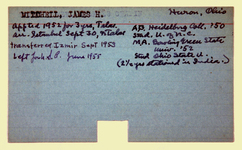 MITCHELL, JAMES H. Huron, Ohio
App'td 1952 for 3 yrs, Talas A.B. Heidelberg Coll. '50
arr. Istanbul Sept 30, 52 Talas Stud. U. of N.C.
transferred Izmir Sept 1953 M.A. Bowling Green State
Univ. '52
Left June 1955 Stud. Ohio State U.
(2½ yrs stationed in India.)